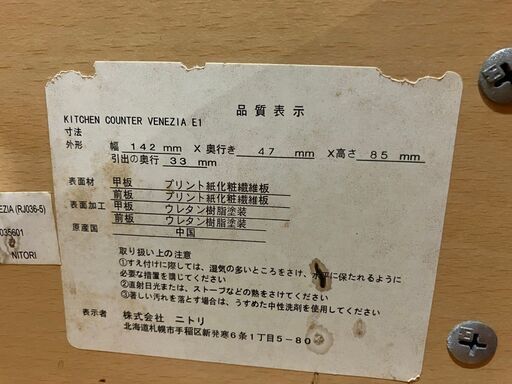 品質表示
KITCHEN COUNTER VENEZIA E1
寸法
外形 幅 142 mm X奥行き 47 mm X高さ 85 mm
引出の奥行 33 mm
表面材 甲板 プリント紙化粧繊維板
前板 プリント紙化粧繊維板
表面加工 甲板 ウレタン樹脂塗装
前板 ウレタン樹脂塗装
原産国 中国
取り扱い上の注意
①すえ付けに際しては、湿気の多いところをさけ、水平に保たれるように
必要な措置を講じてください。
②直射日光または、ストーブなどの熱をさけてください。
③著しい汚れを落とす場合は、うすめた中性洗剤を使用して
ください。
表示者 株式会社 ニトリ
北海道札幌市手稲区新発寒6条1丁目5-80
EZIA (RJ036-5)
035601
NITORI